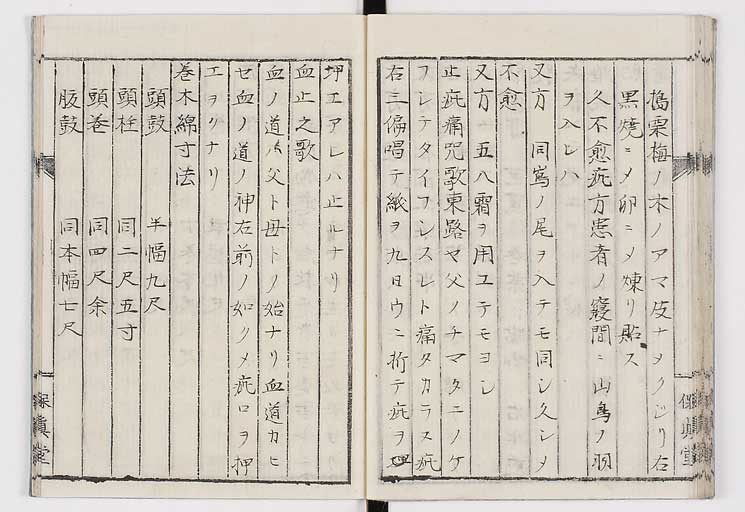 搗栗梅ノ木ノアマ皮ナメクジリ右
黒焼ニメ卯ニメ煉リ貼ス
久不愈疵方患者ノ寝間ニ山鳥ノ羽
ヲ入レハ
又方 同鴬ノ尾ヲ入テモ同シ久シメ
不愈
又方 五八霜ヲ用ユテモヨシ
止疵痛咒歌東路ヤ父ノチマタニノケ
フシテタイコンスレト痛タカラス疵
右三偏唱テ紙ヲ九日ウニ折テ疵ヲ
押エアレハ止ルナリ
血止之歌
血ノ道ハ父ト母トノ始ナリ血道カヒ
セ血ノ道ノ神右前ノ如クメ疵口ヲ押
エヲリナリ
巻木綿寸法
頭鼓 半幅九尺
頭柱 同二尺五寸
頭巻 同四尺余
肢鼓 同本幅七尺
保真堂
保真堂